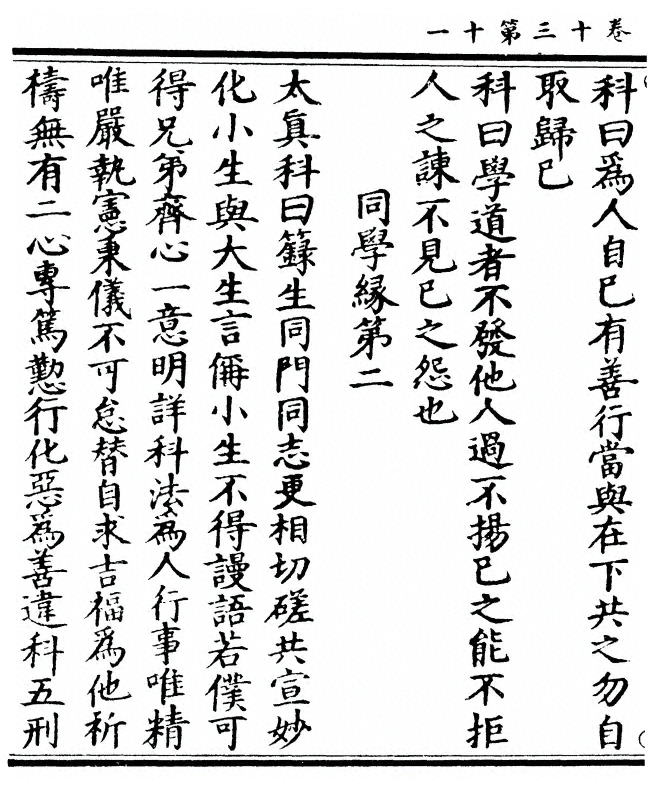 卷十三第十一
科曰爲人自已有善行當與在下共之勿自
取歸已
科曰學道者不發他人過不揚已之能不拒
人之諫不見已之怨也
同學緣第二
太眞科曰籙生同門同志更相切磋共宣妙
化小生與大生言偁小生不得謾語若僕可
得兄弟齊心一意明詳科法爲人行事唯精
唯嚴執憲秉儀不可怠替自求吉福爲他祈
禱無有二心專篤懃行化惡爲善違科五刑